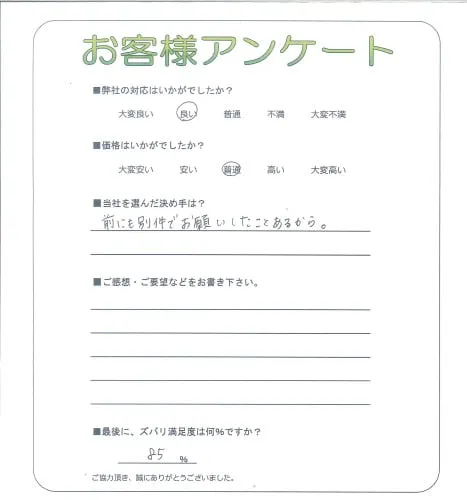 お客様アンケート
■弊社の対応はいかがでしたか？
大変良い 良い 普通 不満 大変不満
■価格はいかがでしたか？
大変安い 安い 普通 高い 大変高い
■当社を選んだ決め手は？
前にも別件でお願いしたことあるから。
■ご感想・ご要望などをお書き下さい。
■最後に、ズバリ満足度は何％ですか？
85 ％
ご協力頂き、誠にありがとうございました。